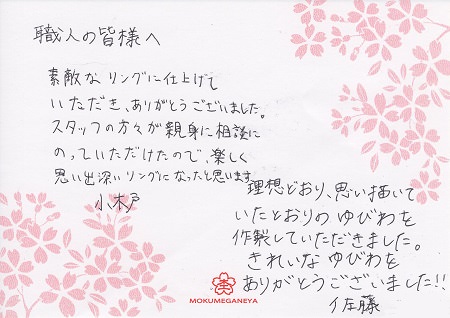 職人の皆様へ
素敵な リングに仕上げて
いただき、ありがとうございました。
スタッフの方々が親身に相談に
のっていただけたので、楽しく
思い出深いリングになったと思います
小木戸
理想どおり、思い描いて
いたとおりの ゆびわを
作製していただきました。
きれいな ゆびわを
ありがとうございました!!
佐藤
MOKUMEGANEYA